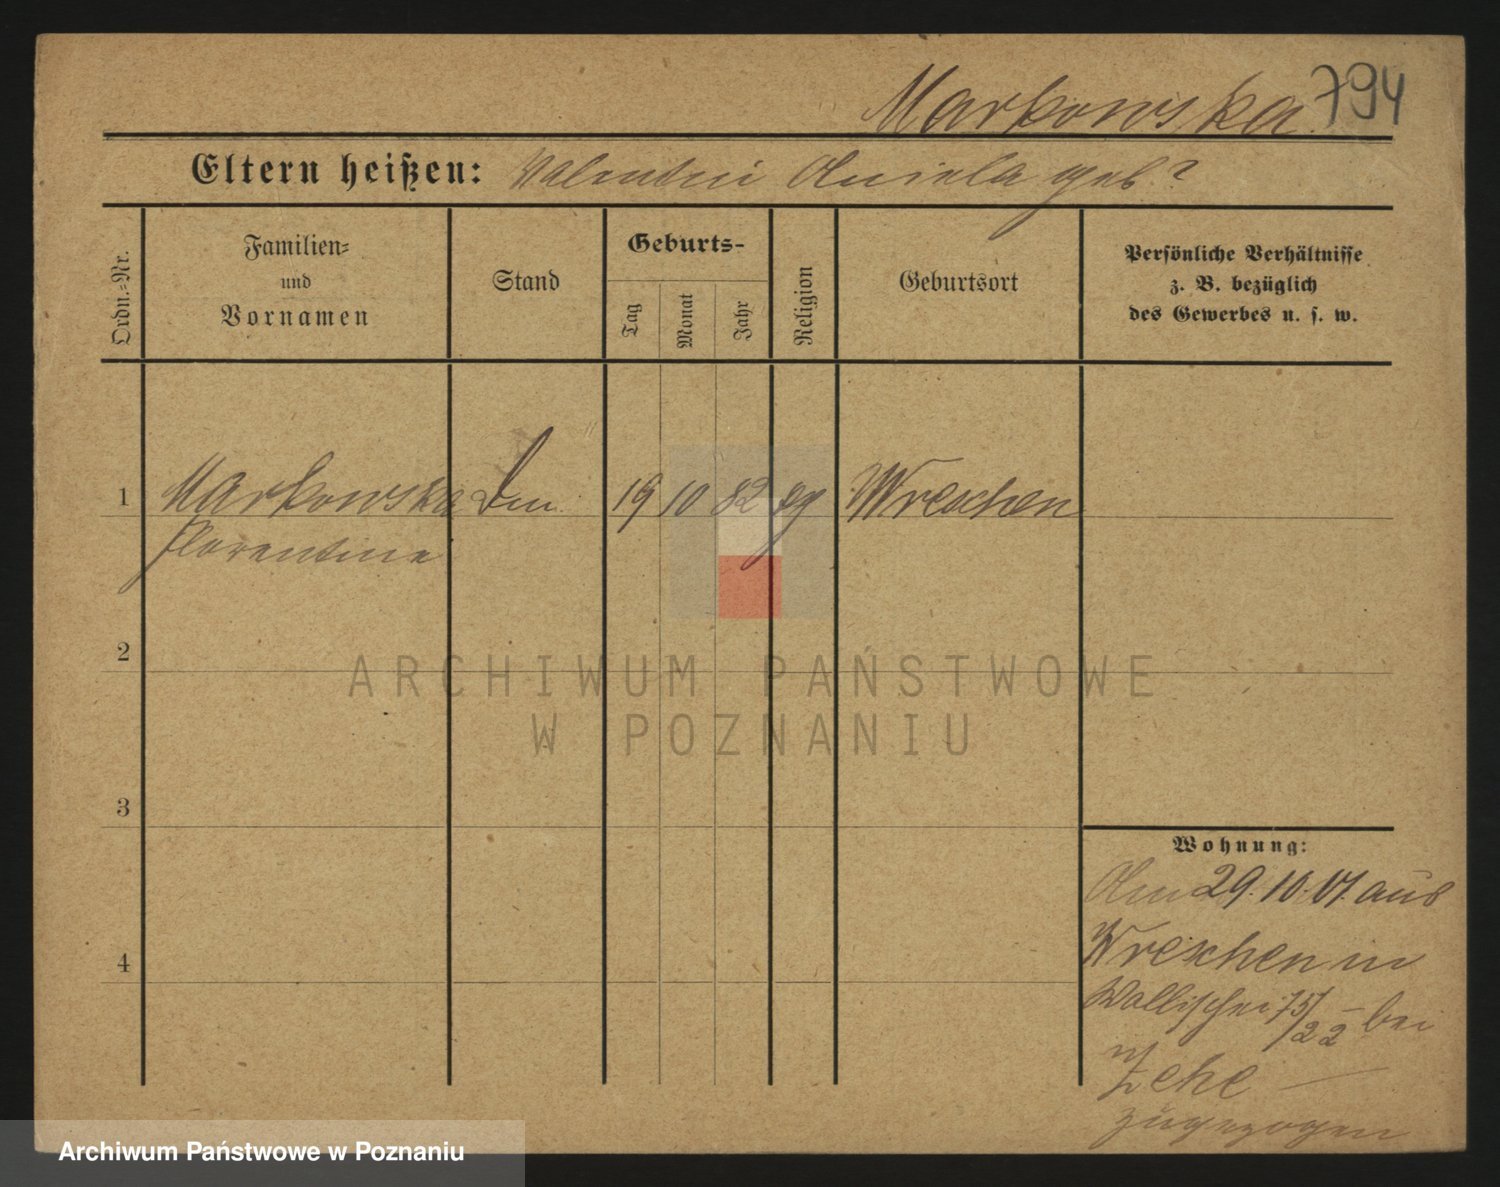 Markowska. 794
Eltern heißen: Valentin Aniela geb?
Ordn.-Nr.
Familien-
und
Vornamen
Stand
Geburts-
Tag
Monat
Jahr
Religion
Geburtsort
Persönliche Verhältnisse
z. B. bezüglich
des Gewerbes u. s. w.
1 Markowska 19 10 82 Wreschen
Florentine
2
ARCHIWUM PAŃSTWOWE
W POZNANIU
3
4
Wohnung:
Am 29.10.07. aus
Wreschen in
Wallischei 75/22 bei
zugezogen
Archiwum Państwowe w Poznaniu